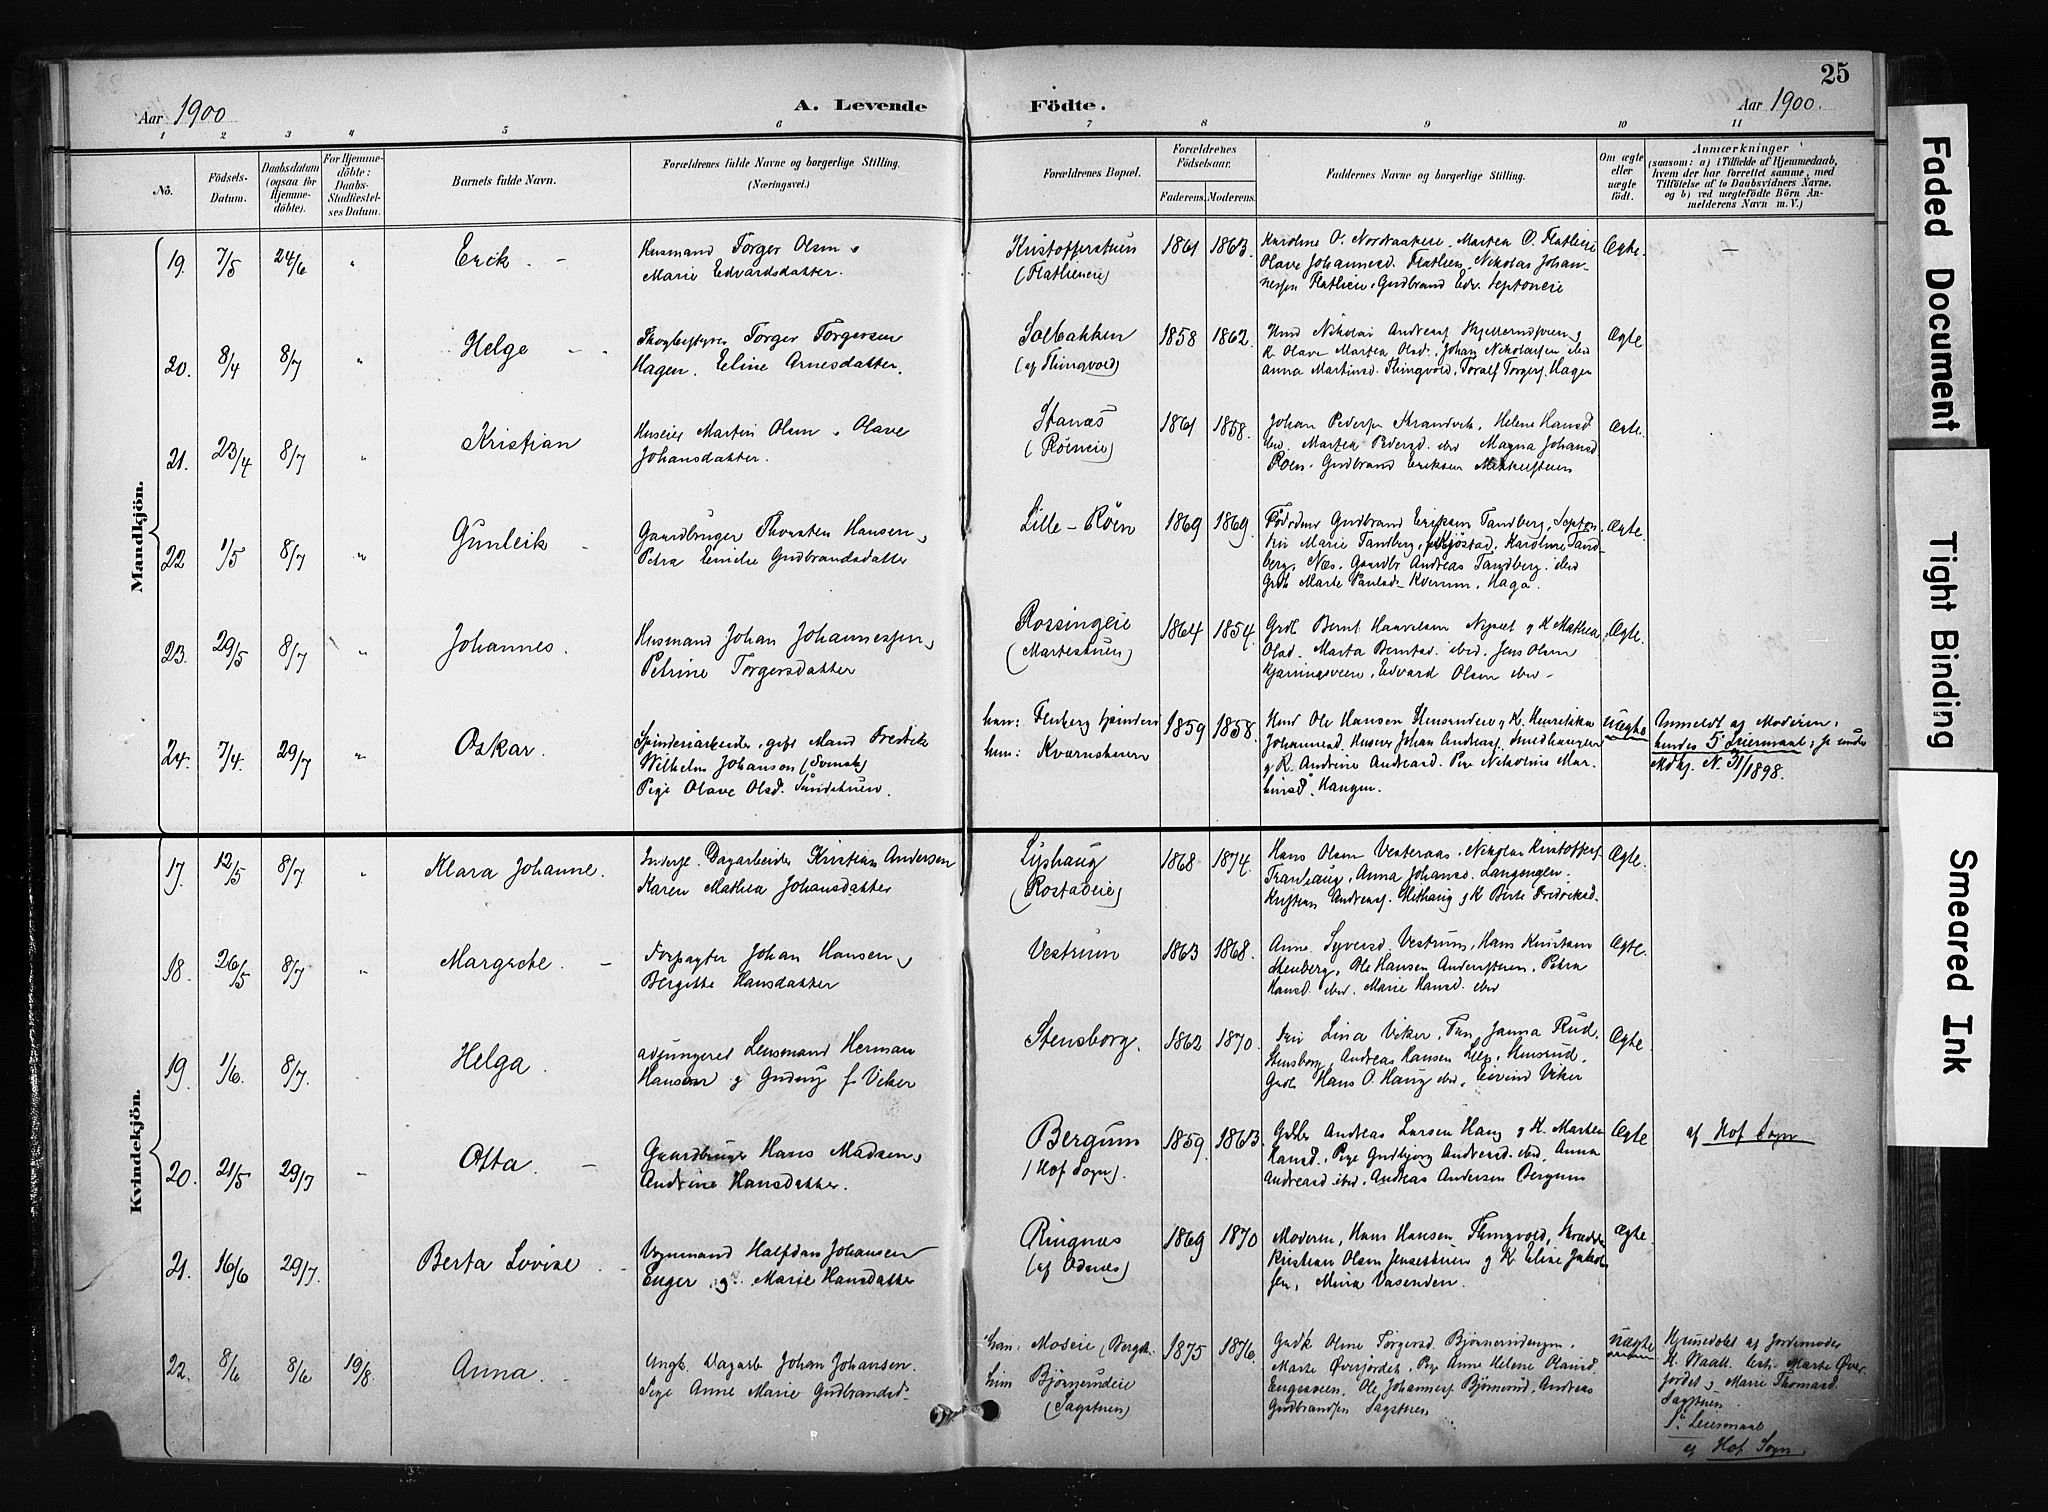 25
Aar 1900
A. Levende Födte.
Aar 1900.
1 2 3 4 5 6 7 8 9 10 11
No.
Födsels-
Datum.
Daabsdatum
(ogsaa for
Hjemme-
döbte).
For Hjemme-
döbte:
Daabs-
Stadfæstel-
ses Datum.
Barnets fulde Navn.
Forældrenes fulde Navne og borgerlige Stilling.
(Næringsvei.)
Forældrenes Bopæl.
Forældrenes
Födselsaar.
Faderens. Moderens.
Faddernes Navne og borgerlige Stilling.
Om ægte
eller
uægte
födt.
Anmærkninger
(saasom: a) i Tilfælde af Hjemmedaab,
hvem der har forrettet samme, med
Tilföielse af to Daabsvidners Navne,
og b) ved uægtefödte Börn An-
melderens Navn m. V.)
Mandkjön.
19. 7/5 24/6 " Erik
Husmand Torger Olsen,
Marie Edvardsdatter.
Kristofferstuen
(Flatlieneie)
1861 1863.
Karoline O. Nordraakeie, Martea O. Flatlieie
Olave Johannesd. Flatlien, Nikolai Johan-
nessen Flatlieie, Gudbrand Edv.
Ægte. -
20. 8/4 8/7 " Helge
Torger Torgersen
Hagen, Eline Arnesdatter.
Solbakken
(af Thingvold)
1858 1862.
Nikolai Andreas
K. Olave Martea Olsd., Johan Nikolaisen ibid
Anna Martinsd. Thingvold, Toralf Torgers. Hagen
Ægte
21. 23/4 8/7 " Kristian
Huseier Martin Olsen, Olave
Johansdatter.
Stanæs
(Röineie)
1861 1858.
Johan Peders. Strandvik, Helene Hansd
ibid. Martea Pedersd. ibid Magna Johansd
Roen. Gudbrand Eriksen Mikkelstuen
Ægte.
22 1/5 8/7 " Gunleik
Gaardbruger Thorsten Hansen,
Petra Emilie Gudbrandsdatter
Lille-Röen
1869 1869.
Gudbrand Eriksen Tandberg,
Marie Tandberg, Kjöstad, Karoline Tand-
berg, Næs, Gaardbr Andreas Tandberg ibid
Grdb Marte Paulsd Kverum, Haga
Ægte.
23. 29/5 8/7 " Johannes.
Husmand Johan Johannessen,
Petrine Torgersdatter
Rossingeie
(Martestuen)
1864 1854.
Grdb Bernt Haavelsen Nyset og K Mathea
Olsd. Marta Berntsd. ibid, Jens Olsen
Kjærringsveien, Edvard Olsen ibid
Ægte.
24. 7/4. 29/7 " Oskar.
Spinderiarbeider, gift Mand Fredrik
Wilhelm Johanson (Svensk)
Pige Olave Olsd. Sandstuen.
han: Fluberg Spinderi
hun: Kværnstuen
1859 1858.
Husd Ole Hansen og K. Henrikka
Johannesd, Huseier Johan Andreass. Smedhaugen
og K. Andrine Andreasd. Pige Nikoline Mar-
tinsd. Haugen.
Uægte
Anmeldt af Moderen.
hendes 5te Leiermaal; se under
Mdkj. N. 31/1898.
Kvindekjön.
17. 12/5 8/7 " Klara Johanne.
Inderst. Dagarbeider Kristian Andersen
Karen Mathea Johansdatter
Lyshaug
(Rostadeie)
1868 1874.
Hans Olsen Vesteraas, Nikolai Kristoffers.
Tranhaug, Anna Johansd. Langengen.
Kristian Andreass. og K Berte Fredriksd.
Ægte.
18. 26/5 8/7 " Margrete.
Forpagter Johan Hansen,
Bergitte Hansdatter
Vestrum
1863 1868.
Anne Syversd. Vestrum, Hans Kristian
Ole Hansen Anderstuen, Petra
Hansd. ibid. Marie Hansd. ibid
Ægte.
19. 1/6. 8/7. Helga
adjungeret Lensmand Herman
Hansen og Gudrun f. Veker
Stensborg.
1862 1870.
Fru Lina Veker, Frk. Janna Rud,
Stensborg, Andreas Hansen
Grdb Hans O. Haug ibid, Eivind Veker
Ægte.
20. 21/5 29/7 " Otta.
Gaardbruger Hans Madsen,
Andrine Hansdatter.
Bergum
(Hof Sogn).
1859. 1863.
Andreas Larsen Haug og K. Marthea
Hansd., Pige Gudbjörg Andreasd. ibid, Anna
Andreasd ibid, Andreas Andersen Bergum
Ægte
af Hof Sogn
21. 16/6 29/7. Berta Lovise
Vognmand Halfdan Johansen
Enger, og Marie Hansdatter
Ringnæs
(af Odnæs)
1869 1870
Moderen, Hans Hansen Thingvold, Skrædder
Kristian Olsen og K Eline Jakob-
sen, Mina Vasenden.
Ægte.
22. 8/6 8/6 19/8. Anna
Ungk. Dagarb Johan Johansen.
Pige Anne Marie Gudbrandsd.
han: Moseie,
hun Björnerudeie
(Sagstuen)
1875 1876.
Gudk Oline Torgersd. Björnerudengen.
Marte Överjordet, Pige Anne Helene Olausd.
Engesveen, Ole Johanness Björnerud, Andreas
Gudbrandsen Sagstuen
Uægte
Hjemmedöbt af Jordemoder
H. Waall test. Marte Över-
jordet og Marie Thomasd.
Sagstuen
1ste Leiermaal
af Hof Sogn.
Faded Document
Tight Binding
Smeared Ink